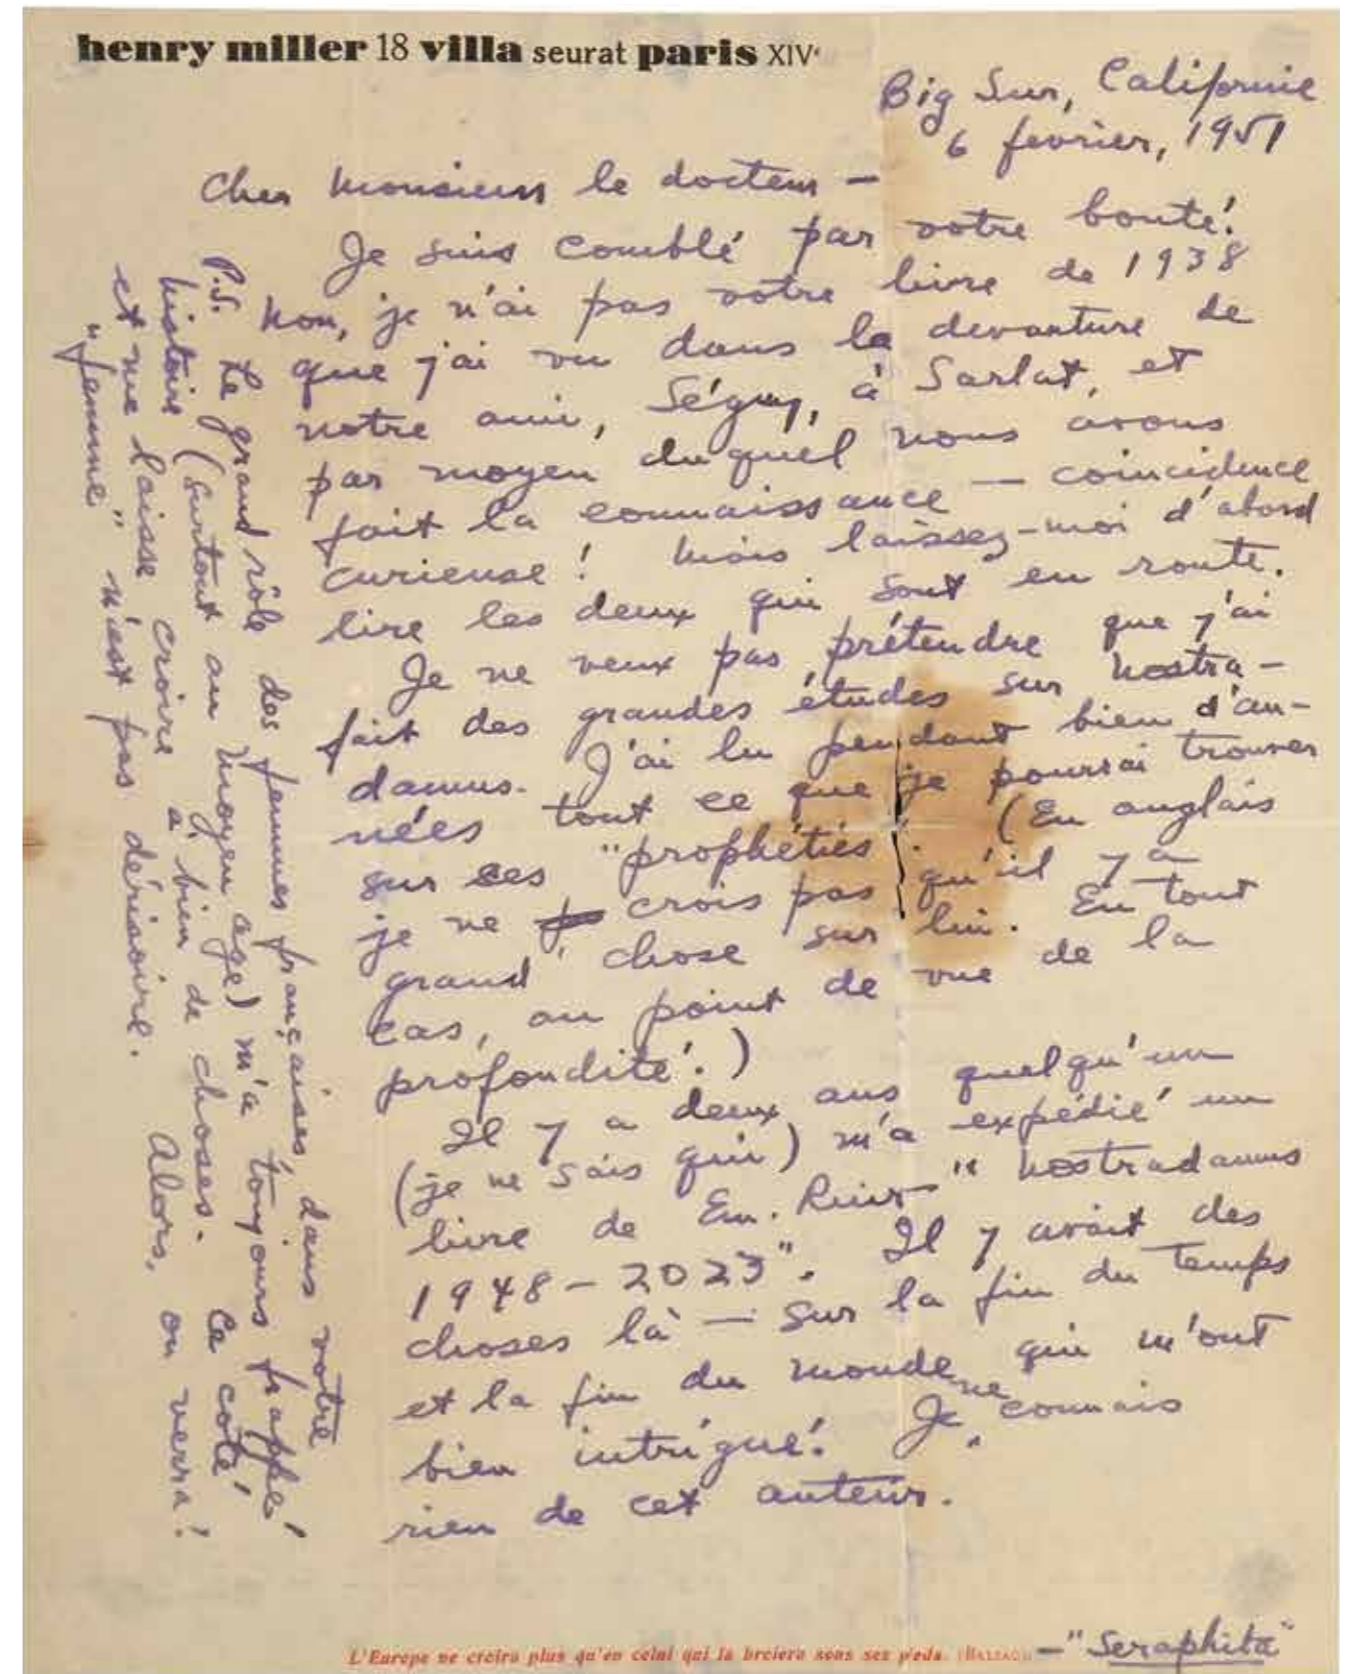 henry miller 18 villa seurat paris XIVe
Big Sur, Californie
6 fevrier, 1951
Cher Monsieur le docteur —
Je suis comblé par votre bonté!
Non, je n'ai pas votre livre de 1938
que j'ai vu dans la devanture de
notre ami, Séguy, à Sarlat, et
par moyen duquel nous avons
fait la connaissance — coincidence
curieuse! Mais laissez-moi d'abord
lire les deux qui sont en route.
Je ne veux pas prétendre que j'ai
fait des grandes études sur Nostra-
damus. J'ai lu pendant bien d'an-
nées tout ce que je pourrai trouver
sur ses "prophéties". (En anglais
je ne crois pas qu'il y a
grand' chose sur lui. En tout
cas, au point de vue de la
profondité.)
Il y a deux ans quelqu'un
(je ne sais qui) m'a expédié un
livre de Em. Ruir "Nostradamus
1948 – 2023". Il y avait des
choses là — sur la fin du temps
et la fin du monde qui m'ont
bien intrigué. Je ne connais
rien de cet auteur.
P.S. Le grand rôle des femmes françaises, dans votre
histoire (surtout au moyen age) m'a toujours frappé
et me laisse croire à bien de choses. Ce coté
"femme" n'est pas dérisoire. Alors, on verra!
L'Europe ne croira plus qu'en celui qui la broiera sous ses pieds. (BALZAC) — "Seraphita"